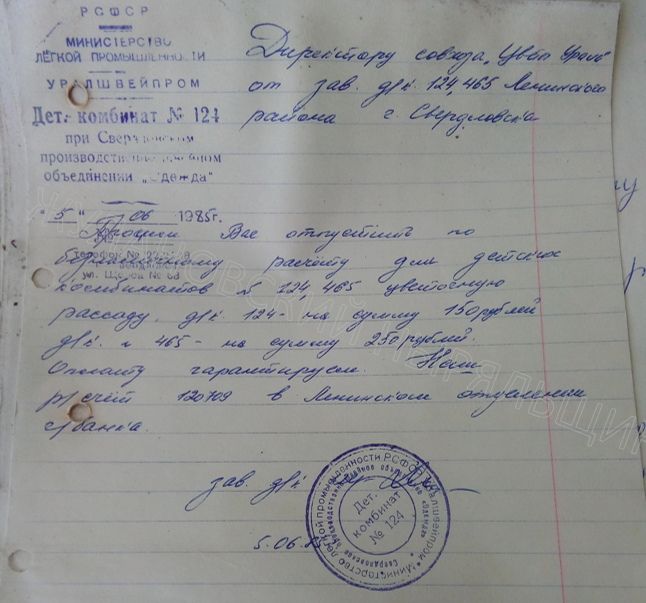 РСФСР
МИНИСТЕРСТВО
ЛЁГКОЙ ПРОМЫШЛЕННОСТИ
УРАЛШВЕЙПРОМ
Дет. комбинат № 124
при Свердловском
производственном швейном
объединении „Одежда"
"5" 06 1985г.
телефон №
ул. № 68
Директору совхоза „Цветы Урала"
от зав. д/к. 124, 465 Ленинского
района г. Свердловска
Просим Вас отпустить по
безналичному расчёту для детских
комбинатов № 124, 465 цветочную
рассаду. д/к. 124 - на сумму 150 рублей
д/к. № 465 - на сумму 250 рублей.
Оплату гарантируем. Наш
р/счёт 120709 в Ленинском отделении
г/банка.
зав. д/к
5.06.85
Министерство легкой промышленности РСФСР
Уралшвейпром
Свердловское производственное швейное объединение «Одежда»
Дет.
комбинат
№ 124